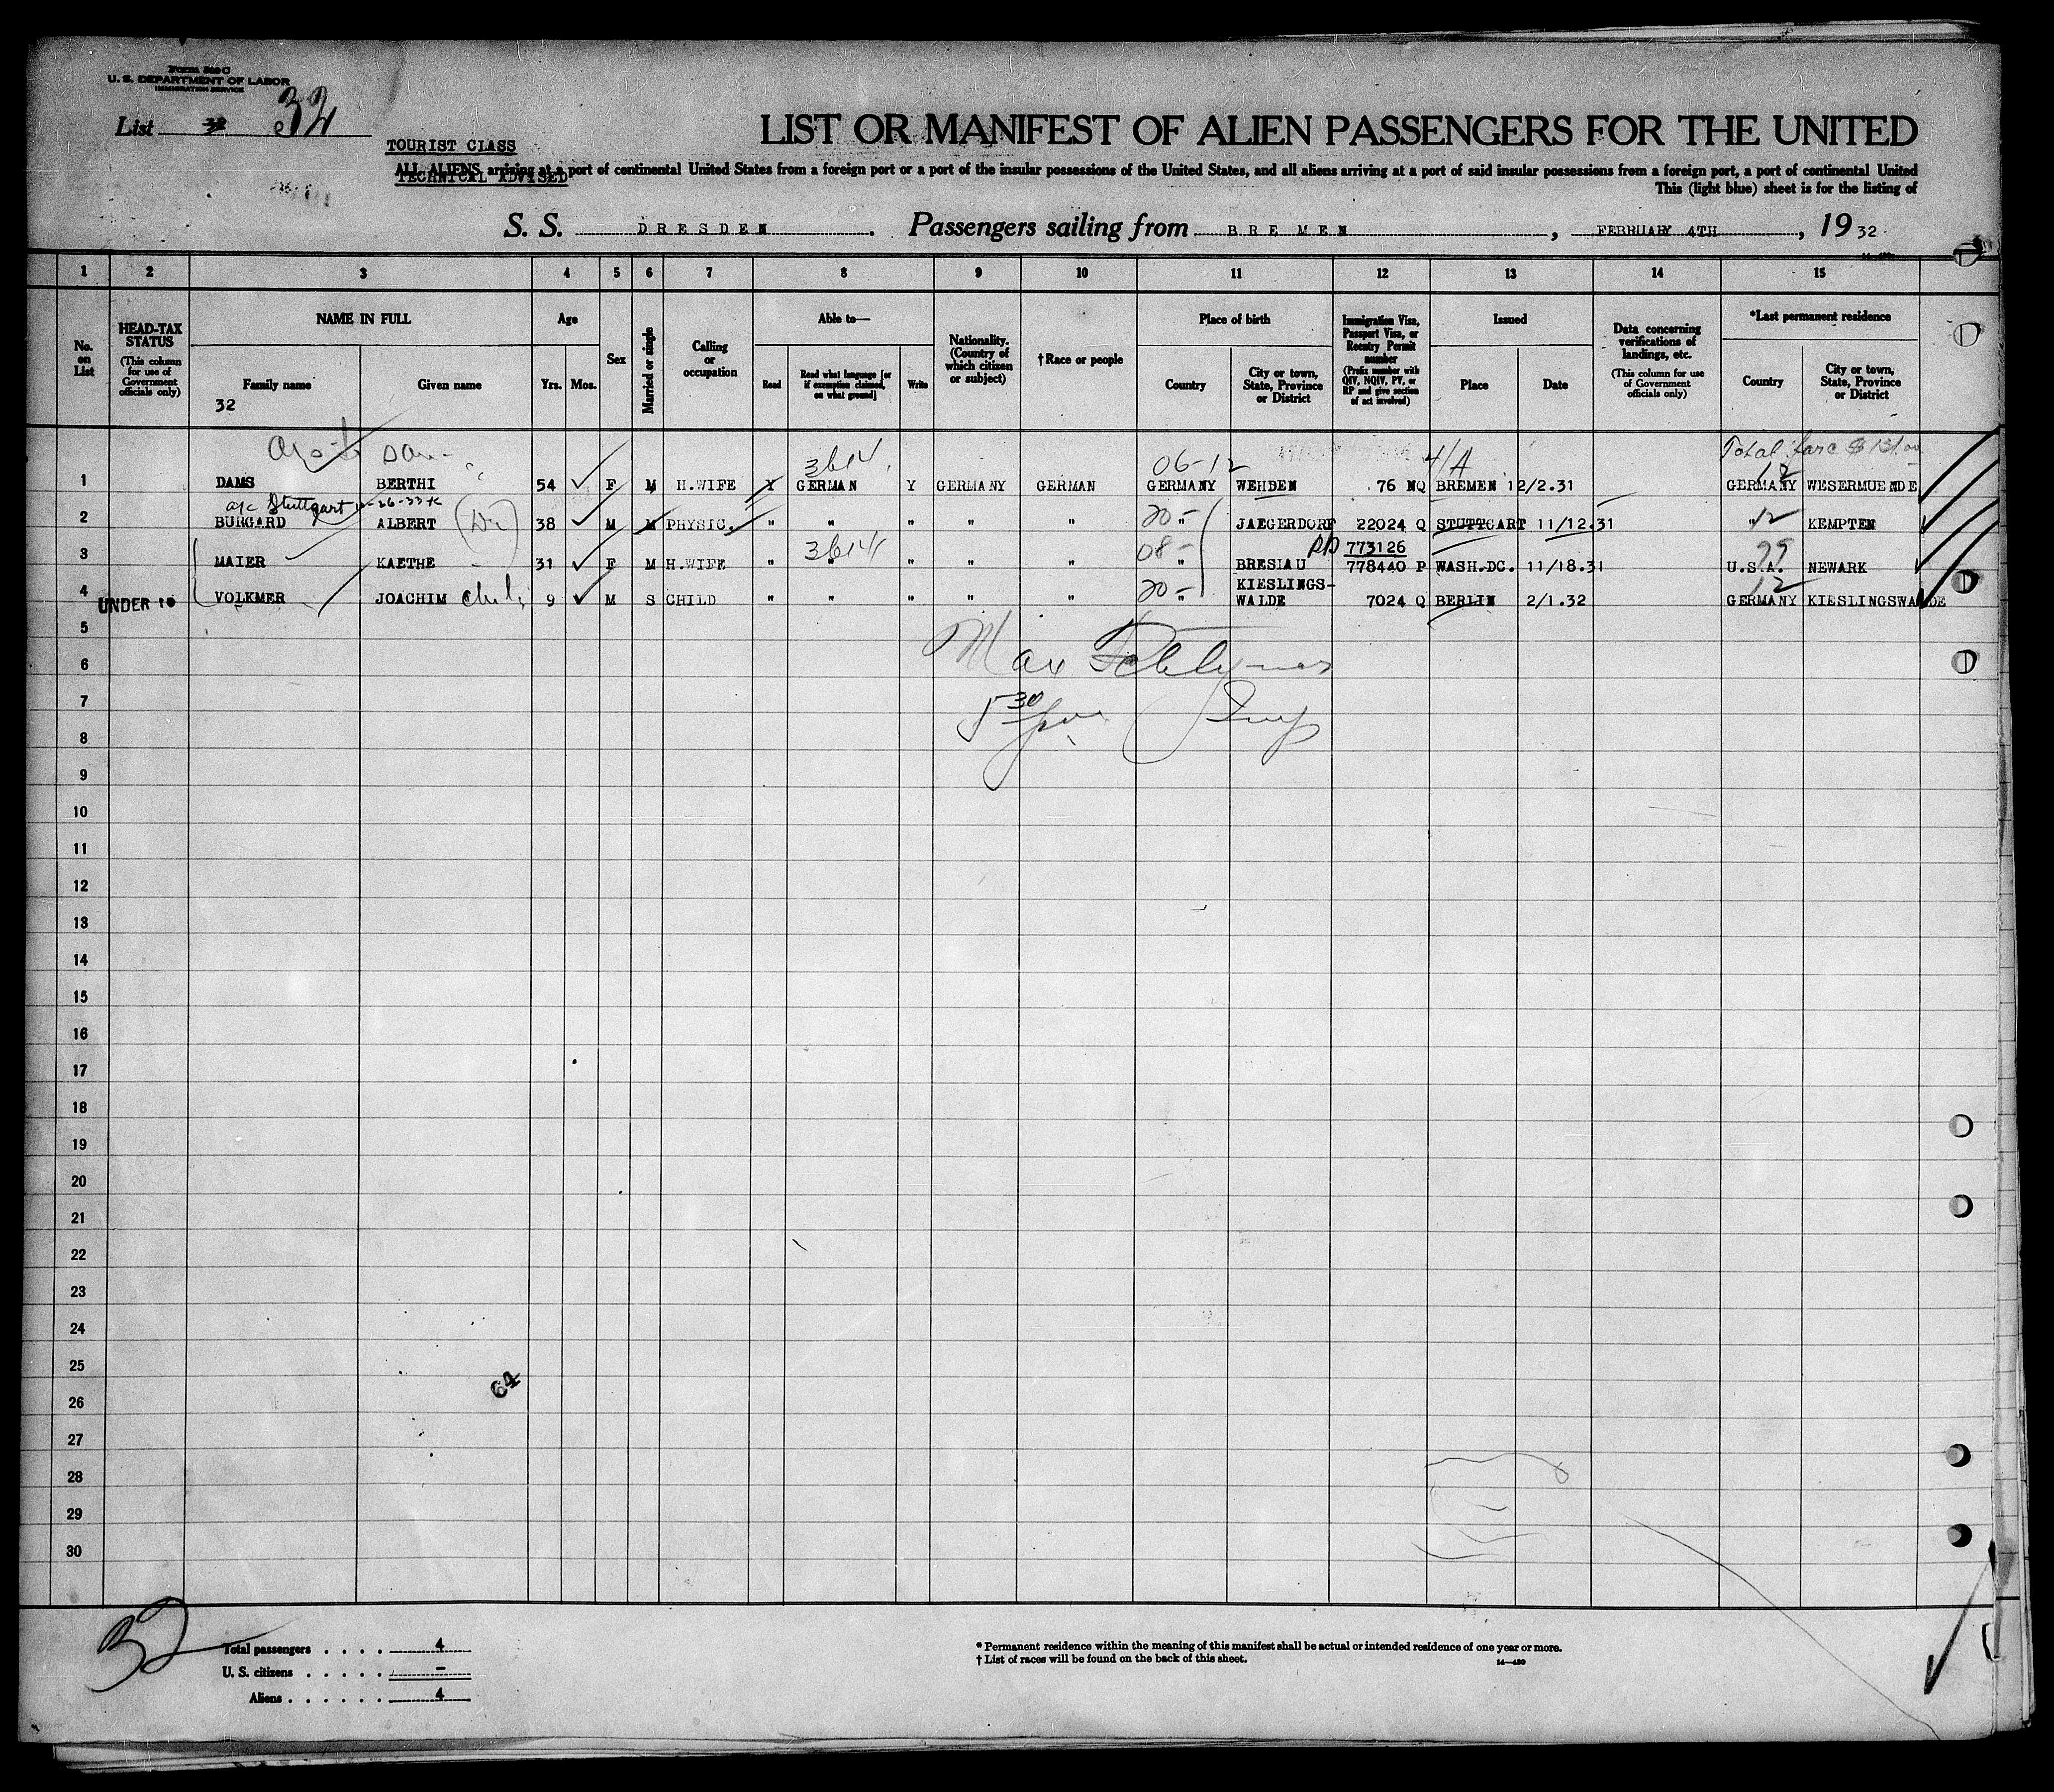 Form 500 C
U. S. DEPARTMENT OF LABOR
IMMIGRATION SERVICE
List 32 32
TOURIST CLASS
TECHNICAL ADVISED
LIST OR MANIFEST OF ALIEN PASSENGERS FOR THE UNITED
ALL ALIENS arriving at a port of continental United States from a foreign port or a port of the insular possessions of the United States, and all aliens arriving at a port of said insular possessions from a foreign port, a port of continental United
This (light blue) sheet is for the listing of
S. S. DRESDEN. Passengers sailing from BREMEN, FEBRUARY 4TH, 19 32
1 2 3 4 5 6 7 8 9 10 11 12 13 14 15
No. on List
HEAD-TAX STATUS (This column for use of Government officials only)
NAME IN FULL
Family name
Given name
32
Age
Yrs. Mos.
Sex
Married or single
Calling or occupation
Able to—
Read
Read what language [or if exemption claimed, on what ground]
Write
Nationality. (Country of which citizen or subject)
†Race or people
Place of birth
Country
City or town, State, Province or District
Immigration Visa, Passport Visa, or Reentry Permit number (Prefix number with QIV, NQIV, PV, or RP and give section of act involved)
Issued
Place
Date
Data concerning verifications of landings, etc. (This column for use of Government officials only)
*Last permanent residence
Country
City or town, State, Province or District
3614 06-12 4/A Total fare $ 12
1 DAMS BERTHI 54 F M H.WIFE Y GERMAN Y GERMANY GERMAN GERMANY WEHDEN 76 NQ BREMEN 12/2.31 GERMANY WESERMUENDE
a/c Stuttgart
2 BURGARD ALBERT (Dr) 38 M M PHYSIC. " " " " " 20- " JAEGERDORF 22024 Q STUTTGART 11/12.31 " 12 KEMPTEN
3614 08- 773126 99
3 MAIER KAETHE 31 F M H.WIFE " " " " " " BRESLAU 778440 P WASH.DC. 11/18.31 U.S.A. NEWARK
KIESLINGS- 12
UNDER 16 4 VOLKMER JOACHIM child 9 M S CHILD " " " " " 20- " WALDE 7024 Q BERLIN 2/1.32 GERMANY KIESLINGSWALDE
5
6 Max
7 5 30 Insp
8
9
10
11
12
13
14
15
16
17
18
19
20
21
22
23
24
25
64
26
27
28
29
30
32
Total passengers . . . . 4
U. S. citizens . . . . . -
Aliens . . . . . . 4
* Permanent residence within the meaning of this manifest shall be actual or intended residence of one year or more.
† List of races will be found on the back of this sheet. 14—430